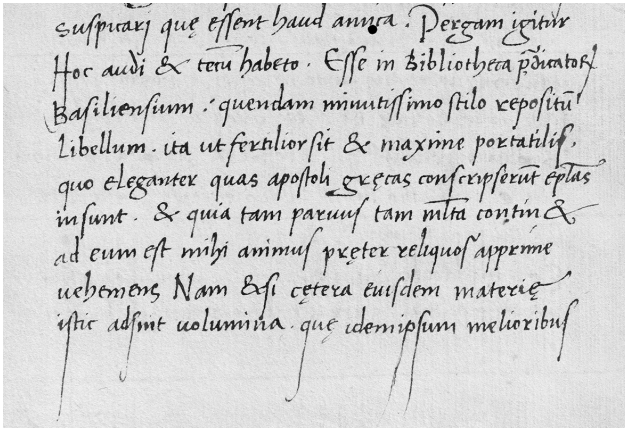 suspicari quę essent haud amica. Pergam igitur
Hoc audi & tecū habeto. Esse in Bibliotheca p̄dicatoꝝ
Basiliensium: quendam minutissimo stilo repositū
libellum. ita ut fertilior sit & maxime portatilis,
quo eleganter quas apostoli gręcas conscripserūt ep̄las
insunt. & quia tam paruus tam ml̄ta contin&
ad eum est mihi animus pręter reliquos apprime
uehemens Nam &si cętera euisdem materię
istic adsint uolumina. quę idemipsum melioribus